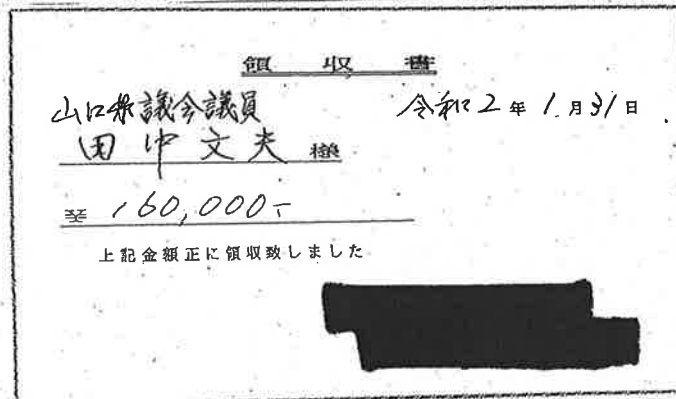 領収書
山口県議会議員 令和2年1月31日
田中文夫様
¥160,000-
上記金額正に領収致しました